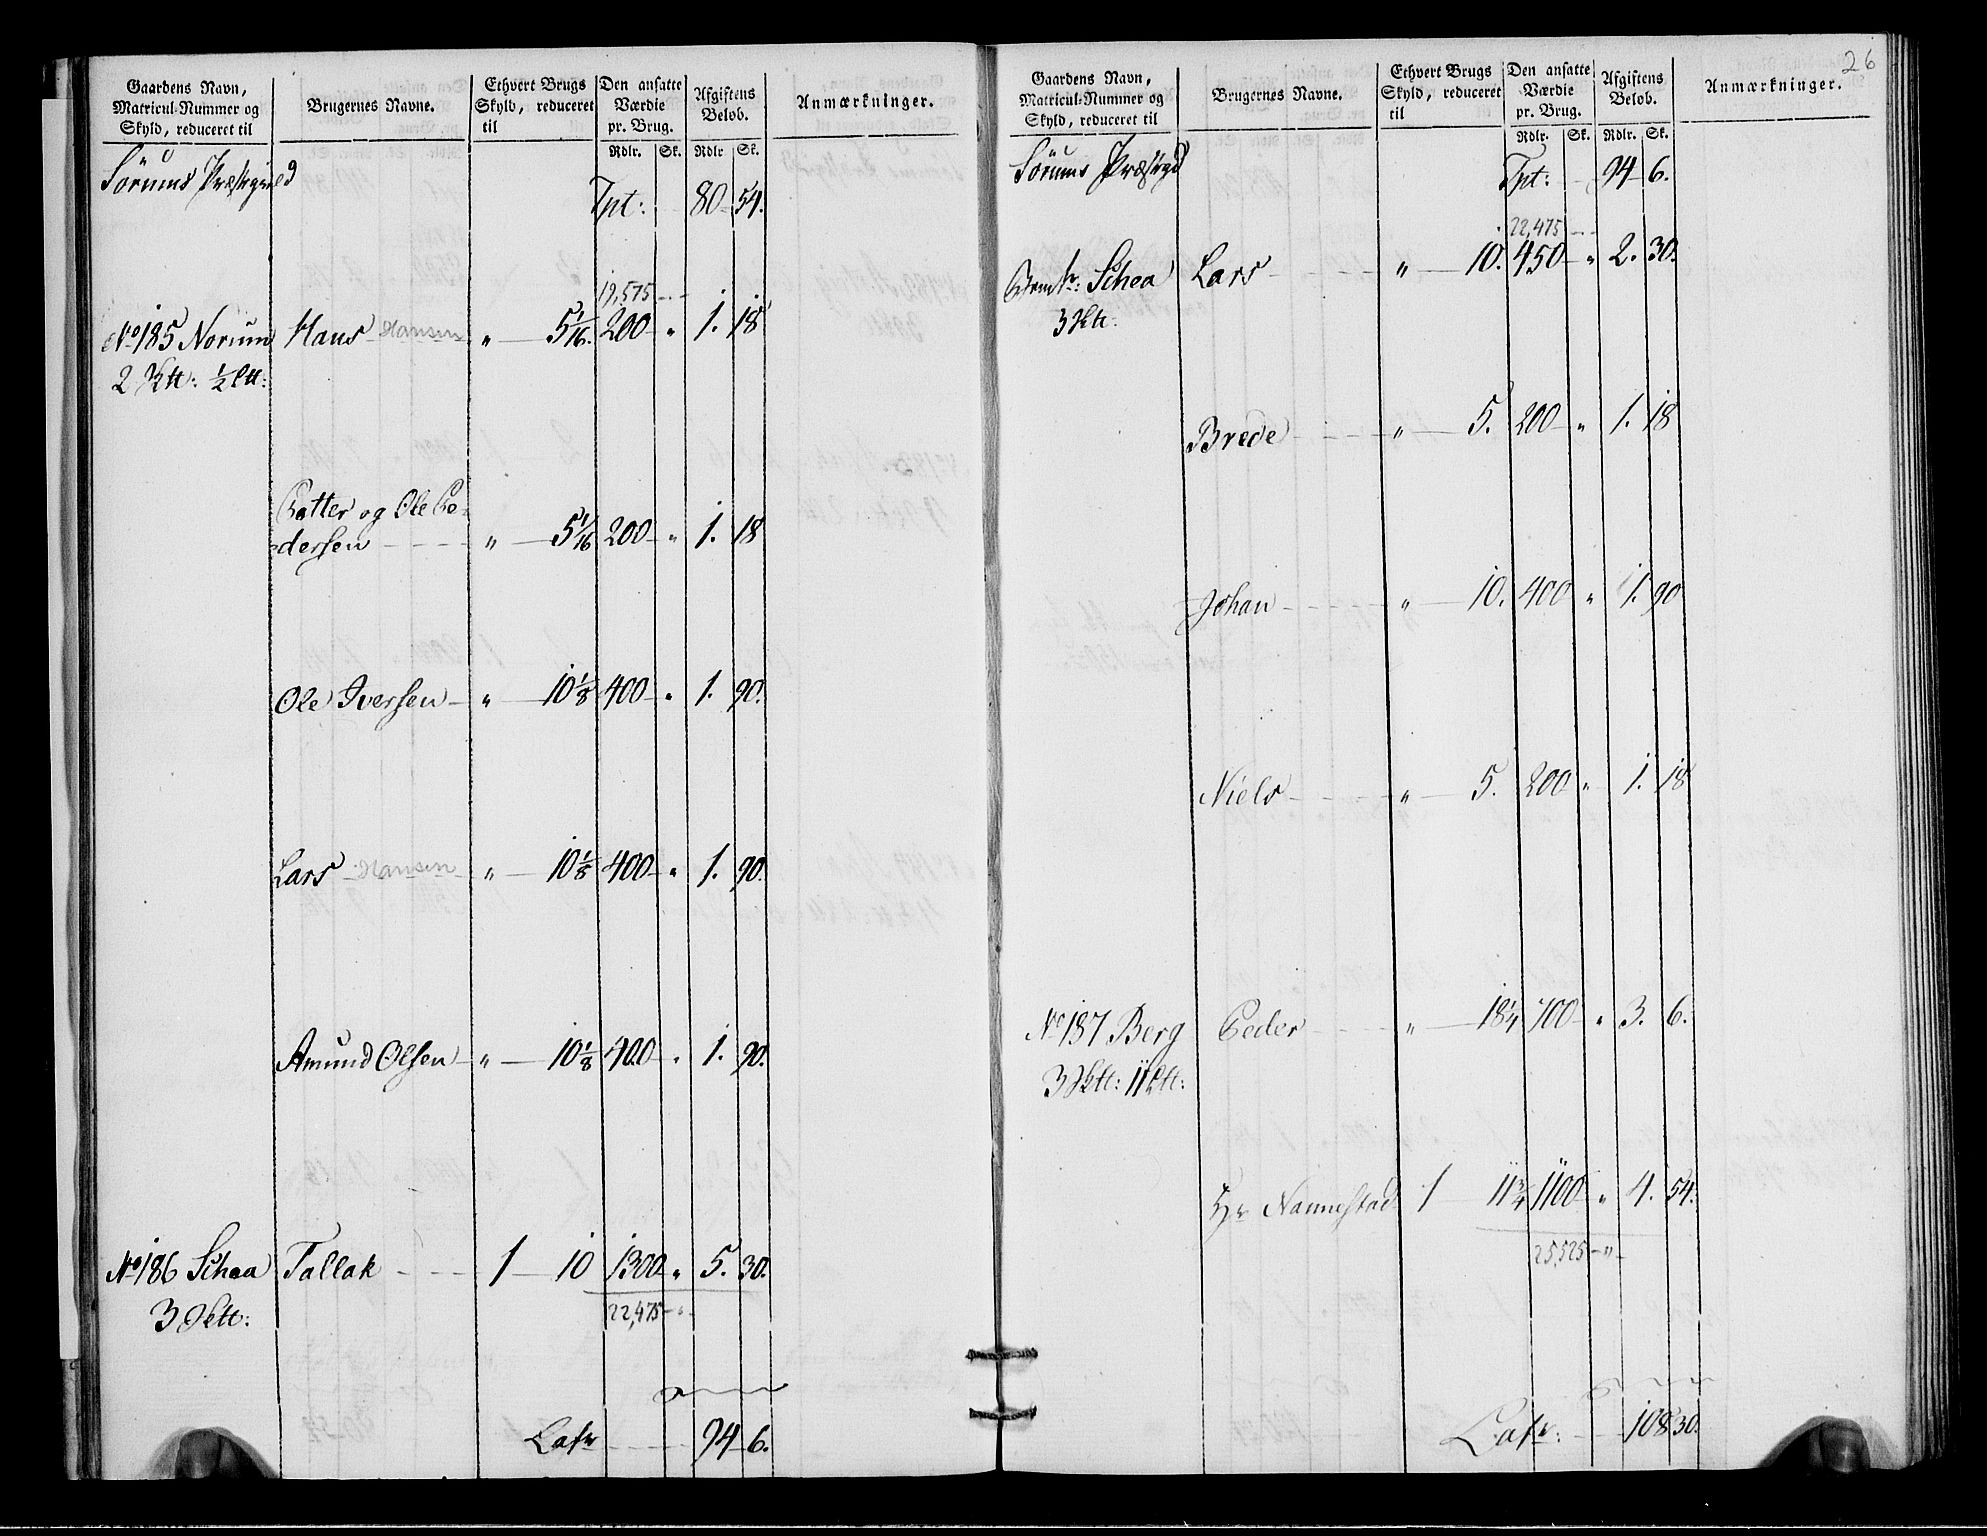 Gaardens Navn, Matricul-Nummer og Skyld, reduceret til | Brugernes Navne. | Ethvert Brugs Skyld, reduceret til | Den ansatte Værdie pr. Brug. | Afgiftens Beløb. | Anmærkninger.
Rdlr. | Sk. | Rdlr | Sk.
Sörums Præstegield
Tpt: 80 54.
19,575
No 185 Norum Hans Hansen " 5 1/16. 200 " 1. 18
2 Ktt: 1/2 Ltt:
Petter og Ole Pe-
dersen " 5 1/16 200 " 1. 18
Ole Iversen " 10 1/8 400 " 1. 90.
Lars Hansen " 10 1/8 400 " 1. 90.
Amund Olsen " 10 1/8 400 " 1. 90.
No 186 Schea Tallak 1 10 1300 " 5. 30.
3 Sktt: 22,475 "
Latr 94 6.
26
Gaardens Navn, Matricul-Nummer og Skyld, reduceret til | Brugernes Navne. | Ethvert Brugs Skyld, reduceret til | Den ansatte Værdie pr. Brug. | Afgiftens Beløb. | Anmærkninger.
Rdlr. | Sk. | Rdlr. | Sk.
Sörums Præstegd
Tpt: 94 6.
22,475
Schea Lars " 10. 450 " 2. 30.
3 Sktt:
Brede " 5. 200 " 1. 18
Johan " 10. 400 " 1. 90
Niels " 5. 200 " 1. 18
No 187 Berg Peder " 18 1/4 700 " 3. 6.
3 Sktt: 11 Ltt:
Hr Nannestad 1 11 3/4 1100 " 4. 54.
25,525 "
Latr: 108 30.